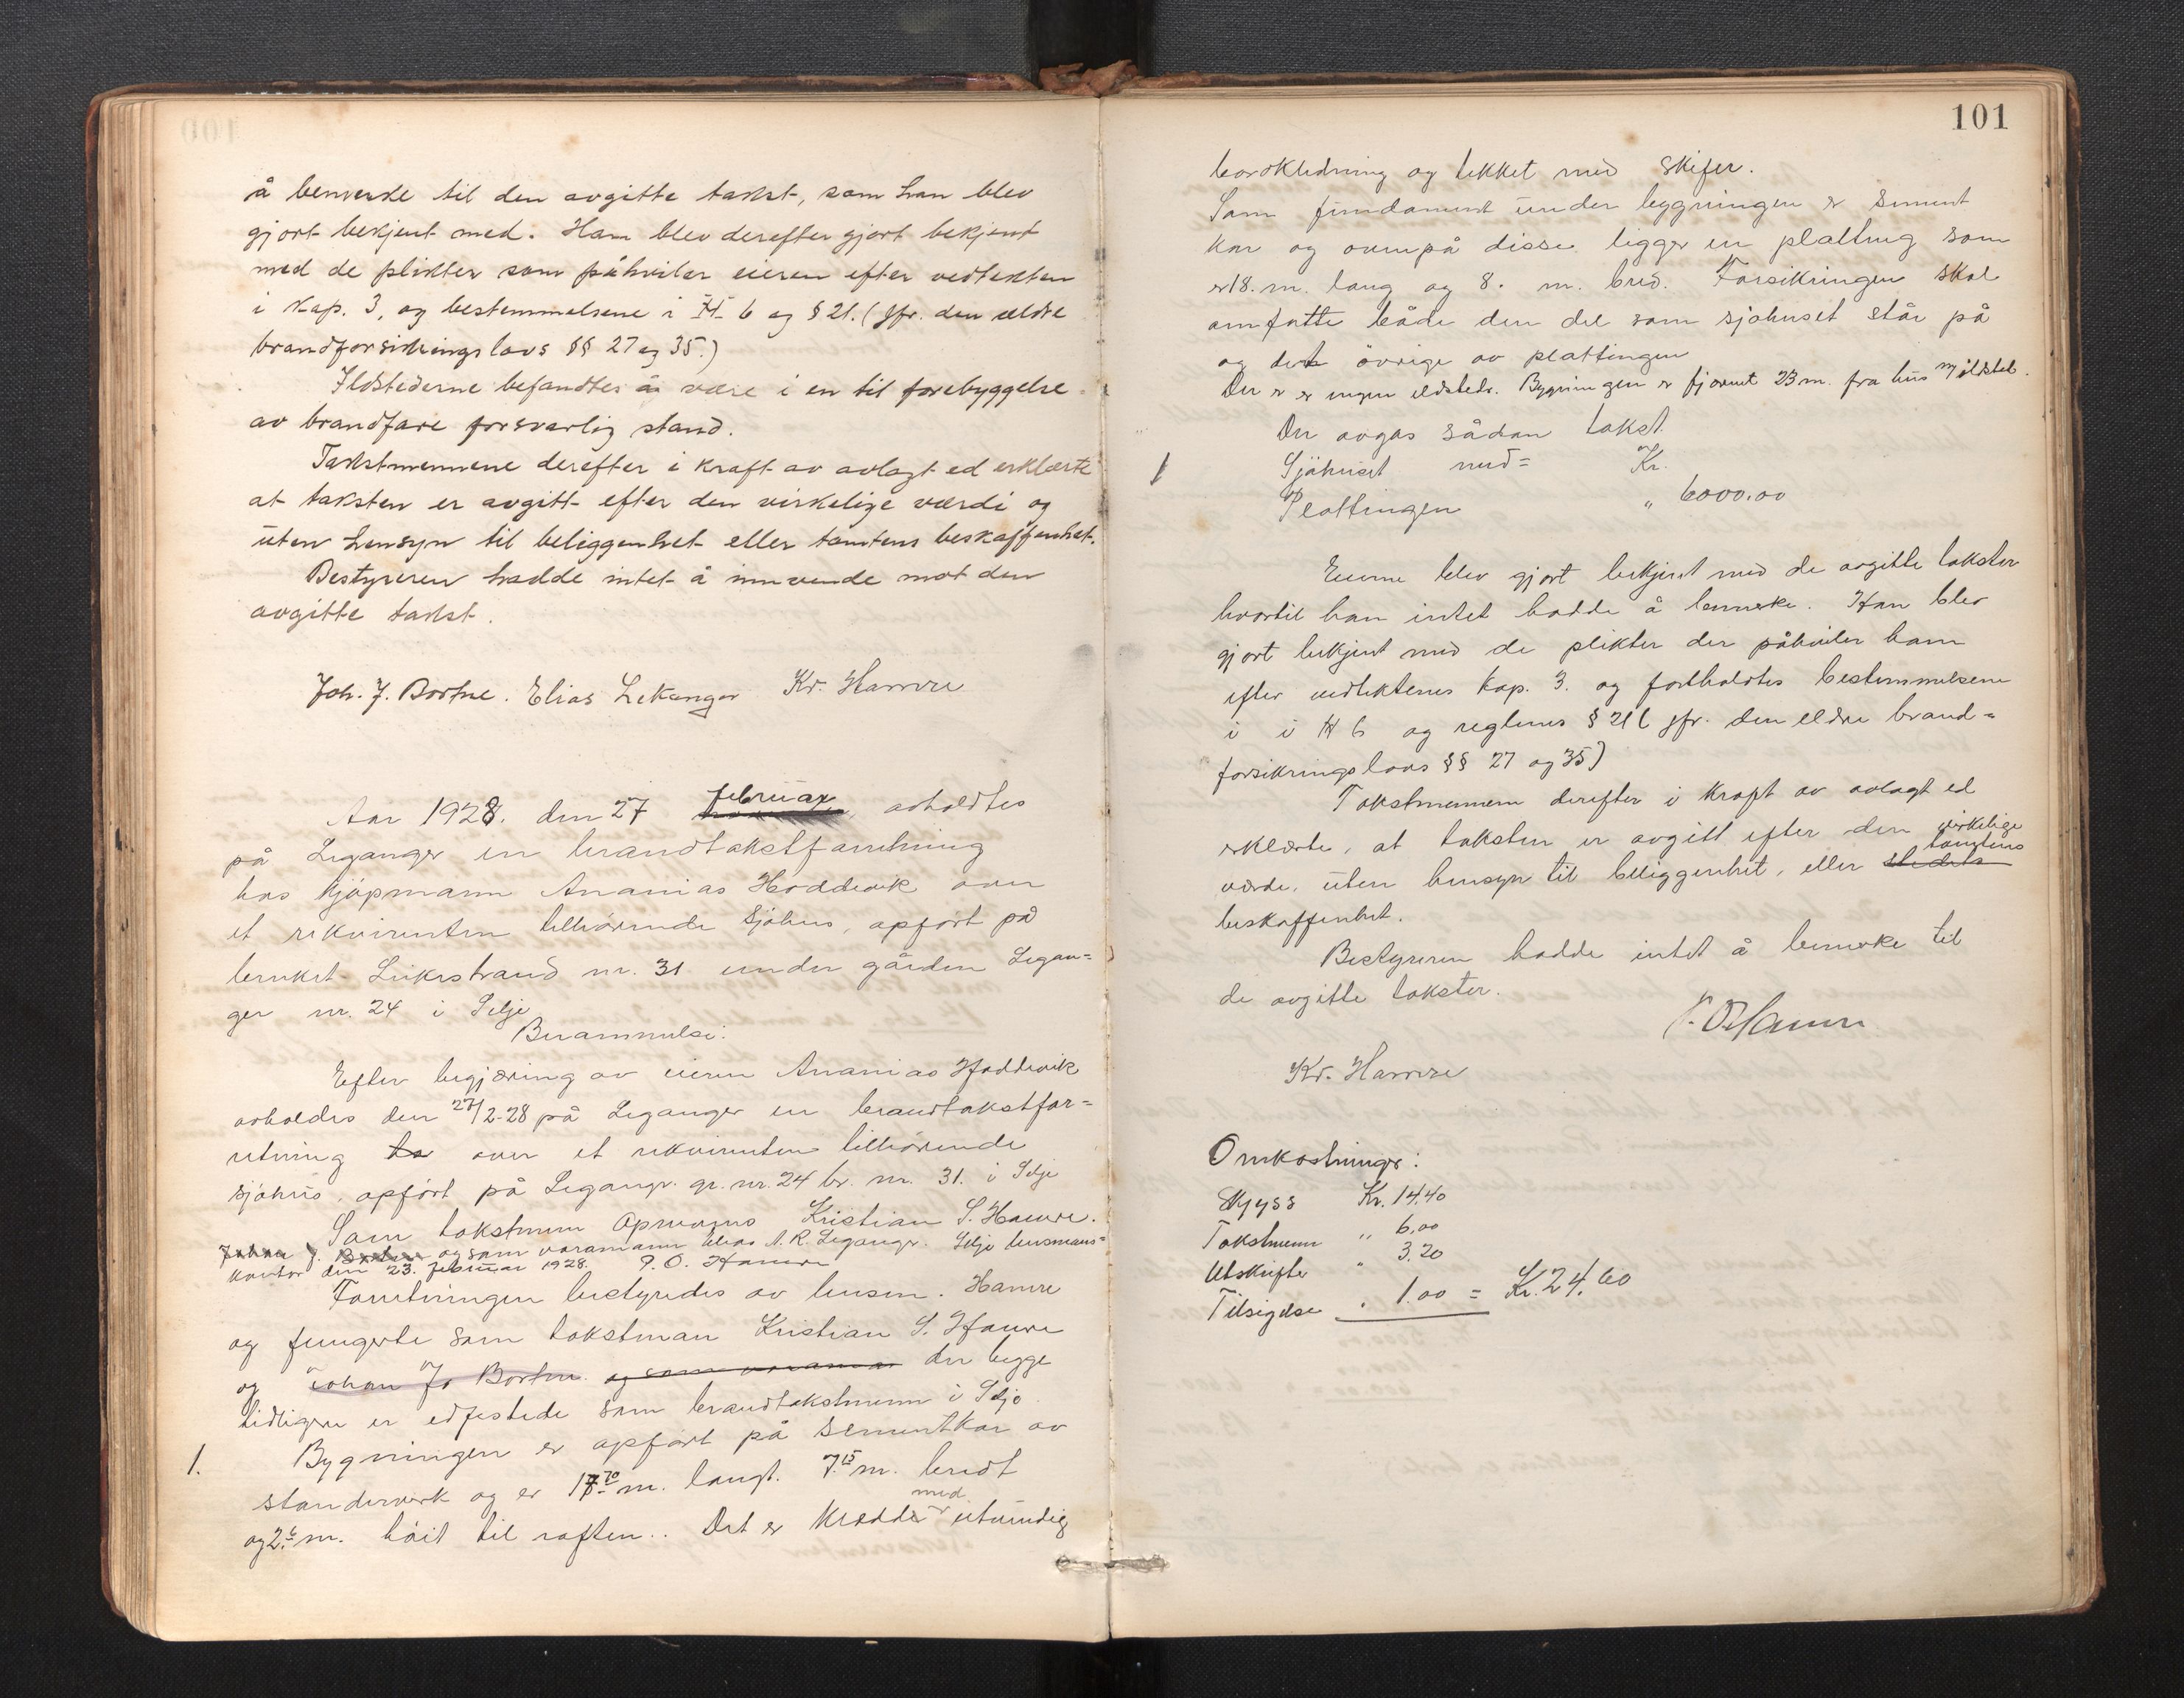 å bemerke til den avgitte takst, som han blev
gjort bekjent med. Han blev derefter gjort bekjent
med de plikter som påhviler eieren efter vedtekten
i kap. 3, og bestemmelsene i H 6 og § 21. (Jfr. den ældre
brandforsikringslovs §§ 27 og 35.)
Ildstederne befandtes å være i en til forebyggelse
av brandfare forsvarlig stand.
Takstmennene derefter i kraft av avlagt ed erklærte
at taksten er avgitt efter den virkelige værdi og
uten hensyn til beliggenhet eller tomtens beskaffenhet.
Bestyreren hadde intet å innvende mot den
avgitte takst.
Joh. J. Bortne. Elias Lekanger Kr. Hamre
Aar 1928. den 27 februar avholdtes
på Leganger en brandtakstforretning
hos kjöpmann Ananias Hoddevik over
et rekvirenten tilhörende Sjöhus, opfört på
bruket Leikestrand nr. 31 under gården Legan=
ger nr. 24 i Selje
Berammelse:
Efter begjæring av eieren Ananias Hoddevik
avholdes den 27/2-28 på Leganger en brandtakstfor=
retning over et rekvirenten tilhörende
sjöhus, opfört på Leganger gr. nr. 24 br. nr. 31. i Selje
Som takstmenn opnevnes Kristian S. Hamre.
Johan J. Bortne og som varamann Elias A. R. Leganger. Selje lensmans=
kontor den 23. februar 1928. P. O. Hamre
Forretningen bestyredes av lensm. Hamre
og fungerte som takstman Kristian S. Hamre
og Johan Jo Bortne. og som varaman der begge
tidligere er edfestede som brandtakstmenn i Selje
1. Bygningen er opfört på sementkar av
standerverk og er 17.70 m. langt. 7.15 m. bredt
og 2.6 m. höit til raften.. Det er klædd med utvendig
101
bordkledning og tekket med skifer.
Som fundament under bygningen er sement
kar og ovenpå disse ligger en platting som
er 18. m. lang og 8. m. bred. Forsikringen skal
omfatte både den del som sjöhuset står på
og det övrige av plattingen
Der er er ingen ildsted. Bygningen er fjernet 23 m. fra hus m/ildsted.
Der avgas sådan takst.
1 Sjöhuset med= Kr.
Plattingen " 6000.00
Eierne blev gjort bekjent med de avgitte takster
hvortil han intet hadde å bemerke. Han blev
gjort bekjent med de plikter der påhviler ham
efter vedtektenes kap. 3. og foreholdtes bestemmelsene
i i H 6 og reglenes § 21 ( jfr. den eldre brand=
forsikringslovs §§ 27 og 35)
Takstmennene derefter i kraft av avlagt ed
erklærte, at taksten er avgitt efter den virkelige
værde, uten hensyn til beliggenhet, eller stedets tomtens
beskaffenhet.
Bestyreren hadde intet å bemerke til
de avgitte takster.
P. O. Hamre
Kr. Hamre
Omkostninger:
Skyss Kr. 14.40
Takstmenn " 6.00
Utskrifter " 3.20
Tilsigelse " 1.00 = Kr. 24,60